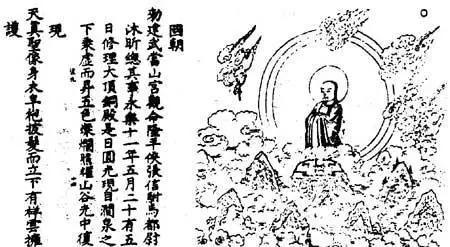 國朝
勑建武當山宮觀命隆平侯張信駙馬都尉
沐昕總其事永樂十一年五月二十有五
日修理大頂銅殿是日圓光現自澗泉之
下乘虛而昇五色燦爛騰耀山谷光中復
現
天真聖像身衣皂袍披髮而立下有祥雲擁
護